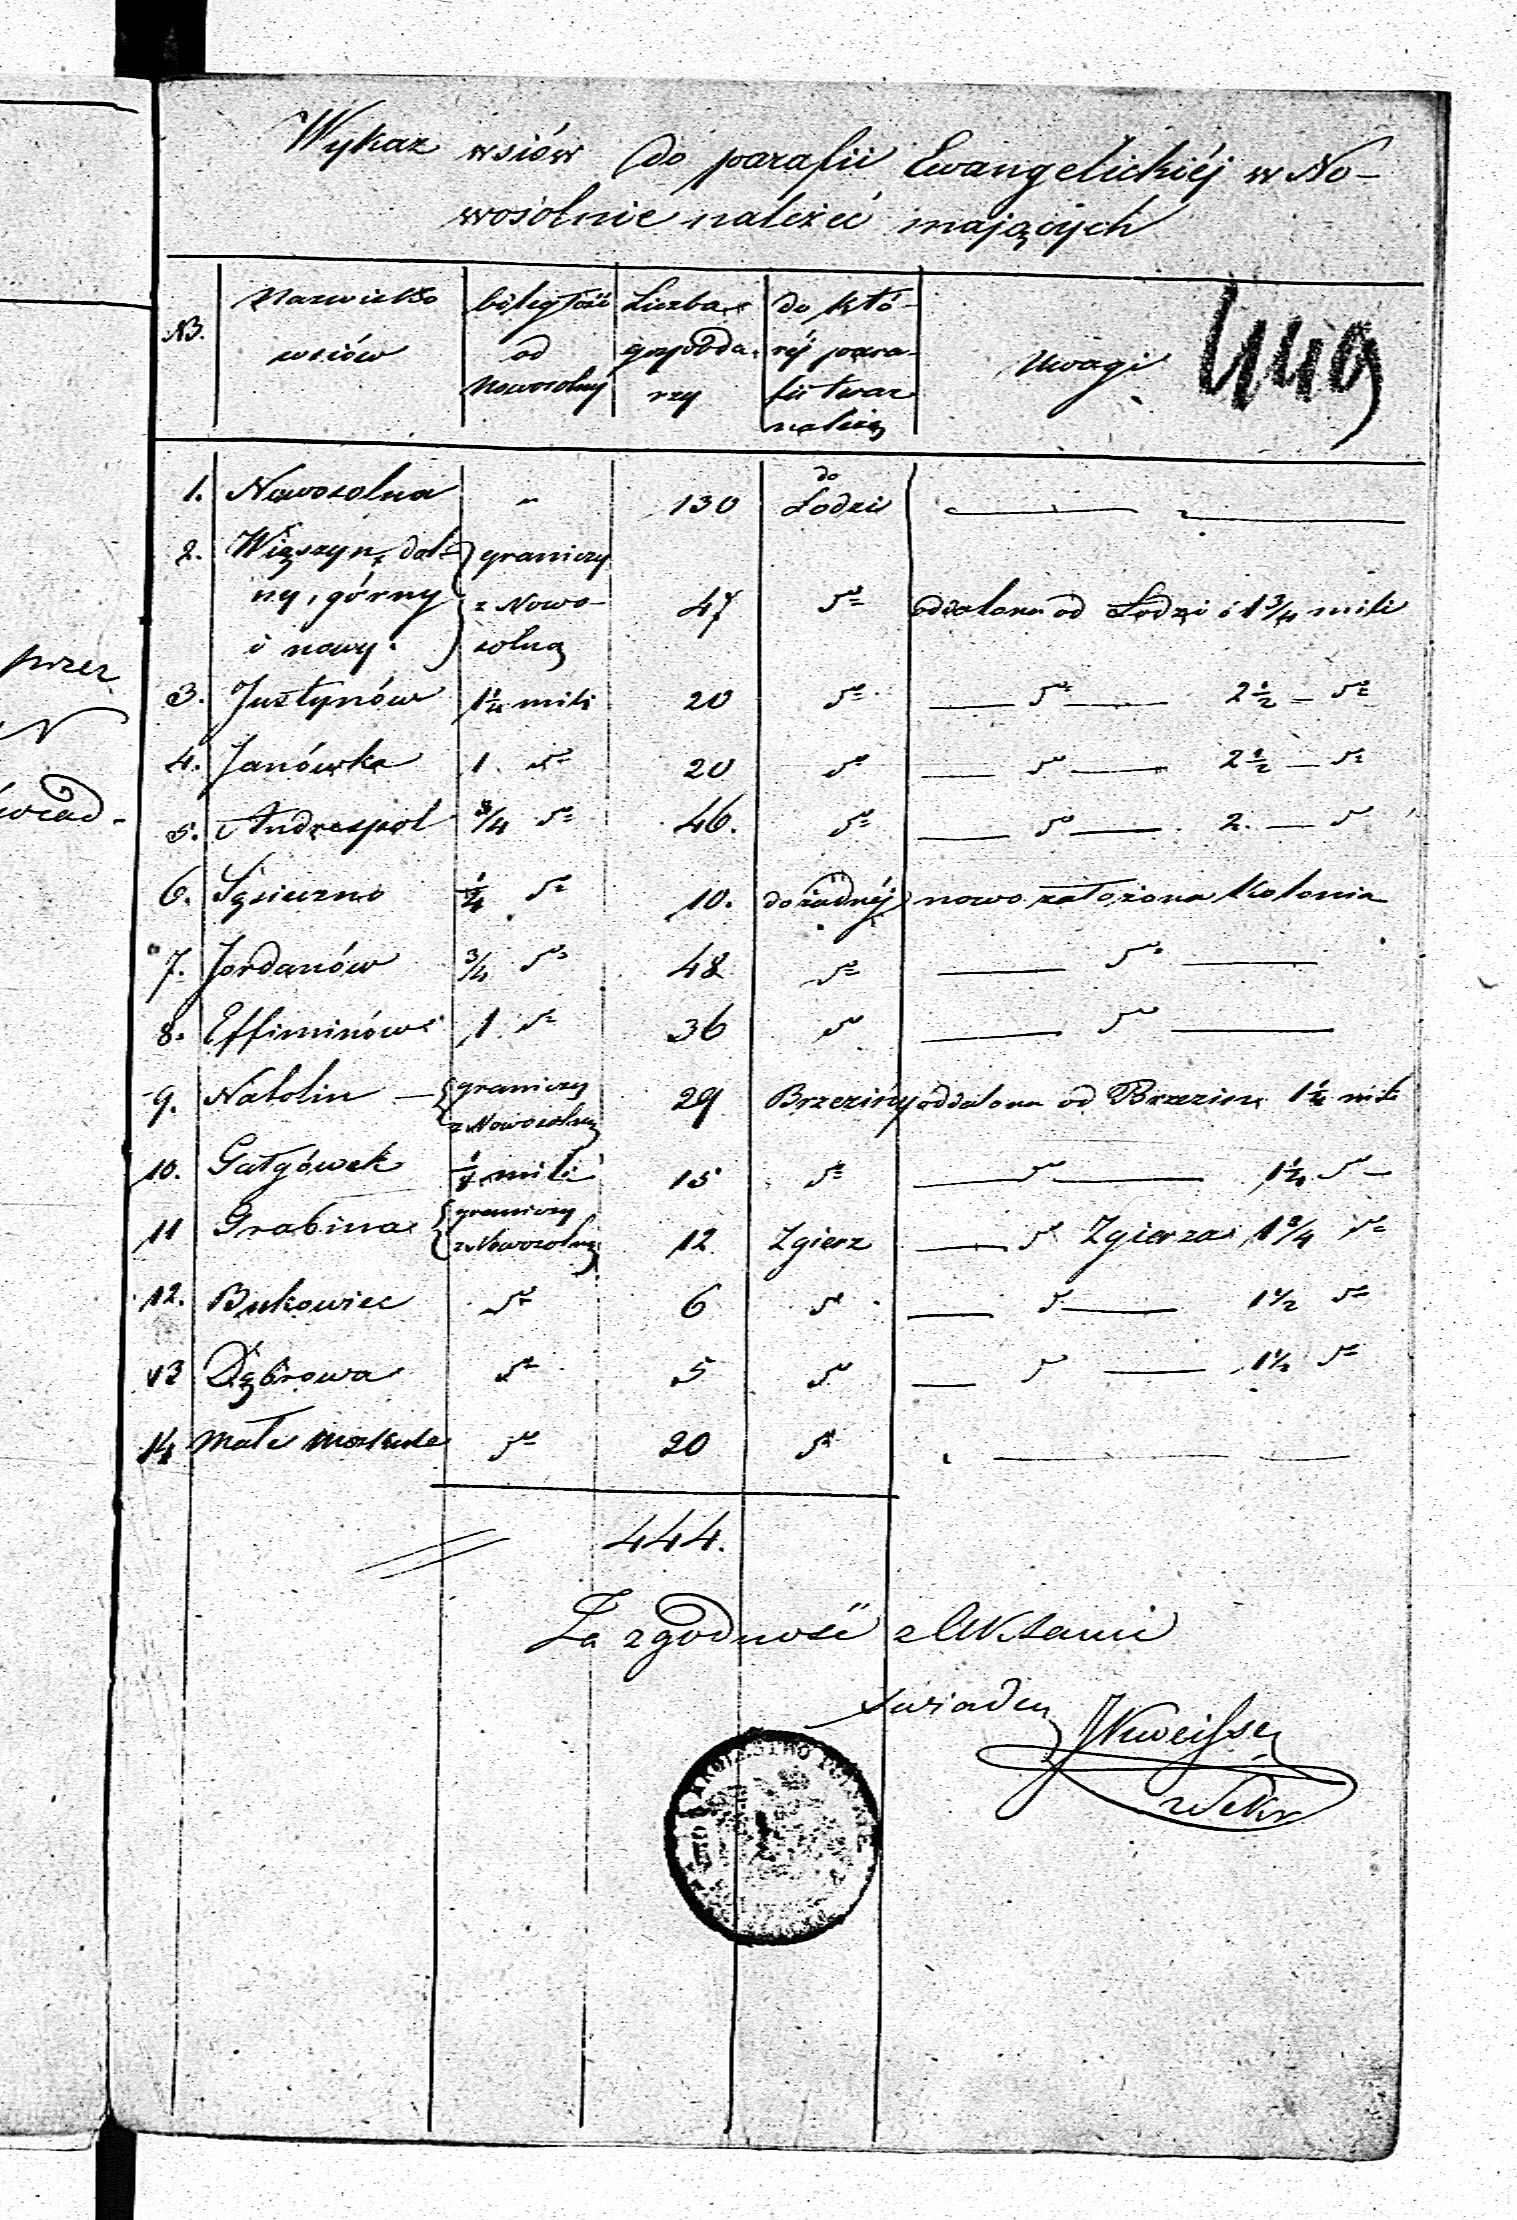 przez
Wykaz wsiów do parafii Ewangelickiéj w No-
wosolnie należéć mających
No.
Nazwisko
wsiów
odległość
od
Nowosolny
Liczba
gospoda-
rzy
do któ-
réj para-
fii teraz
należą
Uwagi
1. Nowosolna " 130 do Łodzi
2. Wiączyn dol- graniczy
ny, górny z Nowo- 47 do oddalona od Łodzi i 1 3/4 mili
i nowy. solną
3. Justynów 1 1/4 mili 20 do do 2 1/2 do
4. Janówka 1 do 20 do do 2 1/2 do
5. Andrespol 3/4 do 46. do do 2. do
6. Sąsieczno 1/4 do 10. do żadnéj nowo założona kolonia
7. Jordanów 3/4 do 48 do do
8. Effiminów 1 do 36 do do
9. Natolin graniczy z Nowosolną 29 Brzeziny oddalona od Brzezin 1 1/2 mili
10. Gałgówek 1/4 mili 15 do do 1 1/4 do
11 Grabina graniczy z Nowosolną 12 Zgierz do Zgierza 1 3/4 do
12. Bukowiec do 6 do do 1 1/2 do
13 Dąbrowa do 5 do do 1 1/2 do
14 Małe do 20 do
444.
Za zgodność z Aktami
świadczy
KRÓLESTWO POLSKIE